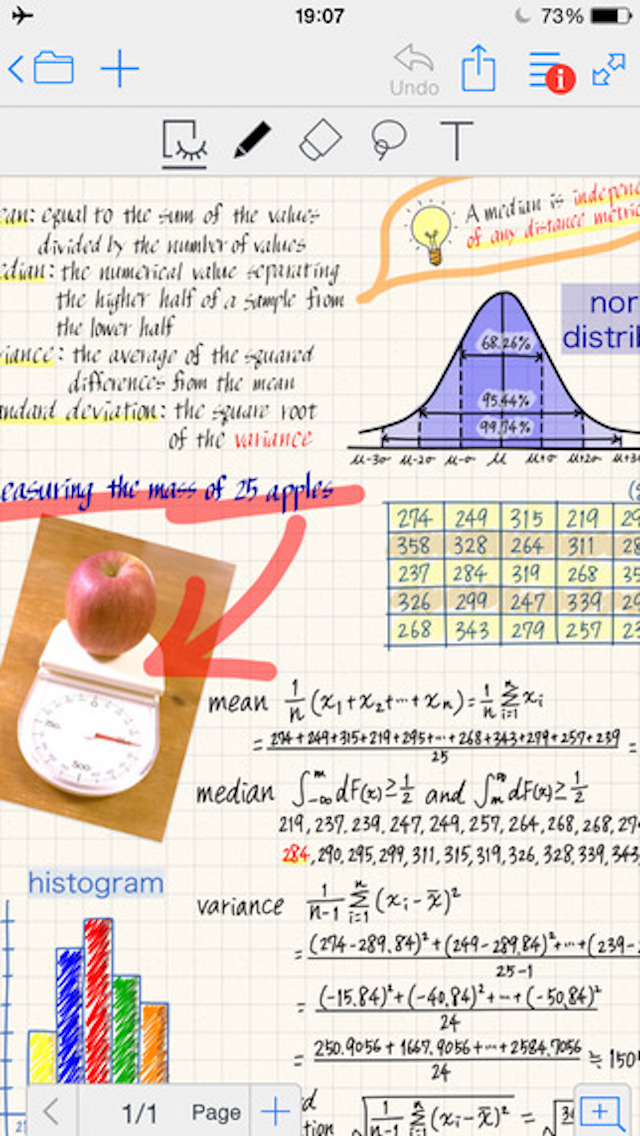 19:07
73%
Undo
i
T
an: equal to the sum of the values
divided by the number of values
dian: the numerical value separating
the higher half of a sample from
the lower half
iance: the average of the squared
differences from the mean
ndard deviation: the square root
of the variance
A median is indepen
of any distance metric
nor
distrib
68.26%
95.44%
99.74%
μ-3σ μ-2σ μ-σ μ μ+σ μ+2σ μ+3
easuring the mass of 25 apples
274 249 315 219 29
358 328 264 311 28
237 284 319 268 35
326 299 247 339 29
268 343 279 257 23
0
500
mean 1/n (x₁+x₂+···+xₙ) = 1/n Σᵢ₌₁ⁿ xᵢ
= (274+249+315+219+295+···+268+343+279+257+239)/25 =
median ∫₋∞ᵐ dF(x) ≥ 1/2 and ∫ₘ^∞ dF(x) ≥ 1/2
219, 237, 239, 247, 249, 257, 264, 268, 268, 274
284, 290, 295, 299, 311, 315, 319, 326, 328, 339, 343,
variance 1/(n-1) Σᵢ₌₁ⁿ (xᵢ - x̄)²
= ((274-289.84)² + (249-289.84)² + ··· + (239-2)/(25-1)
= ((-15.84)² + (-40.84)² + ··· + (-50.84)²)/24
= (250.9056 + 1667.9056 + ··· + 2584.7056)/24 ≒ 150
histogram
d
tion √(1/(n-1) Σᵢ₌₁ⁿ (xᵢ - x̄)²) =
1/1 Page